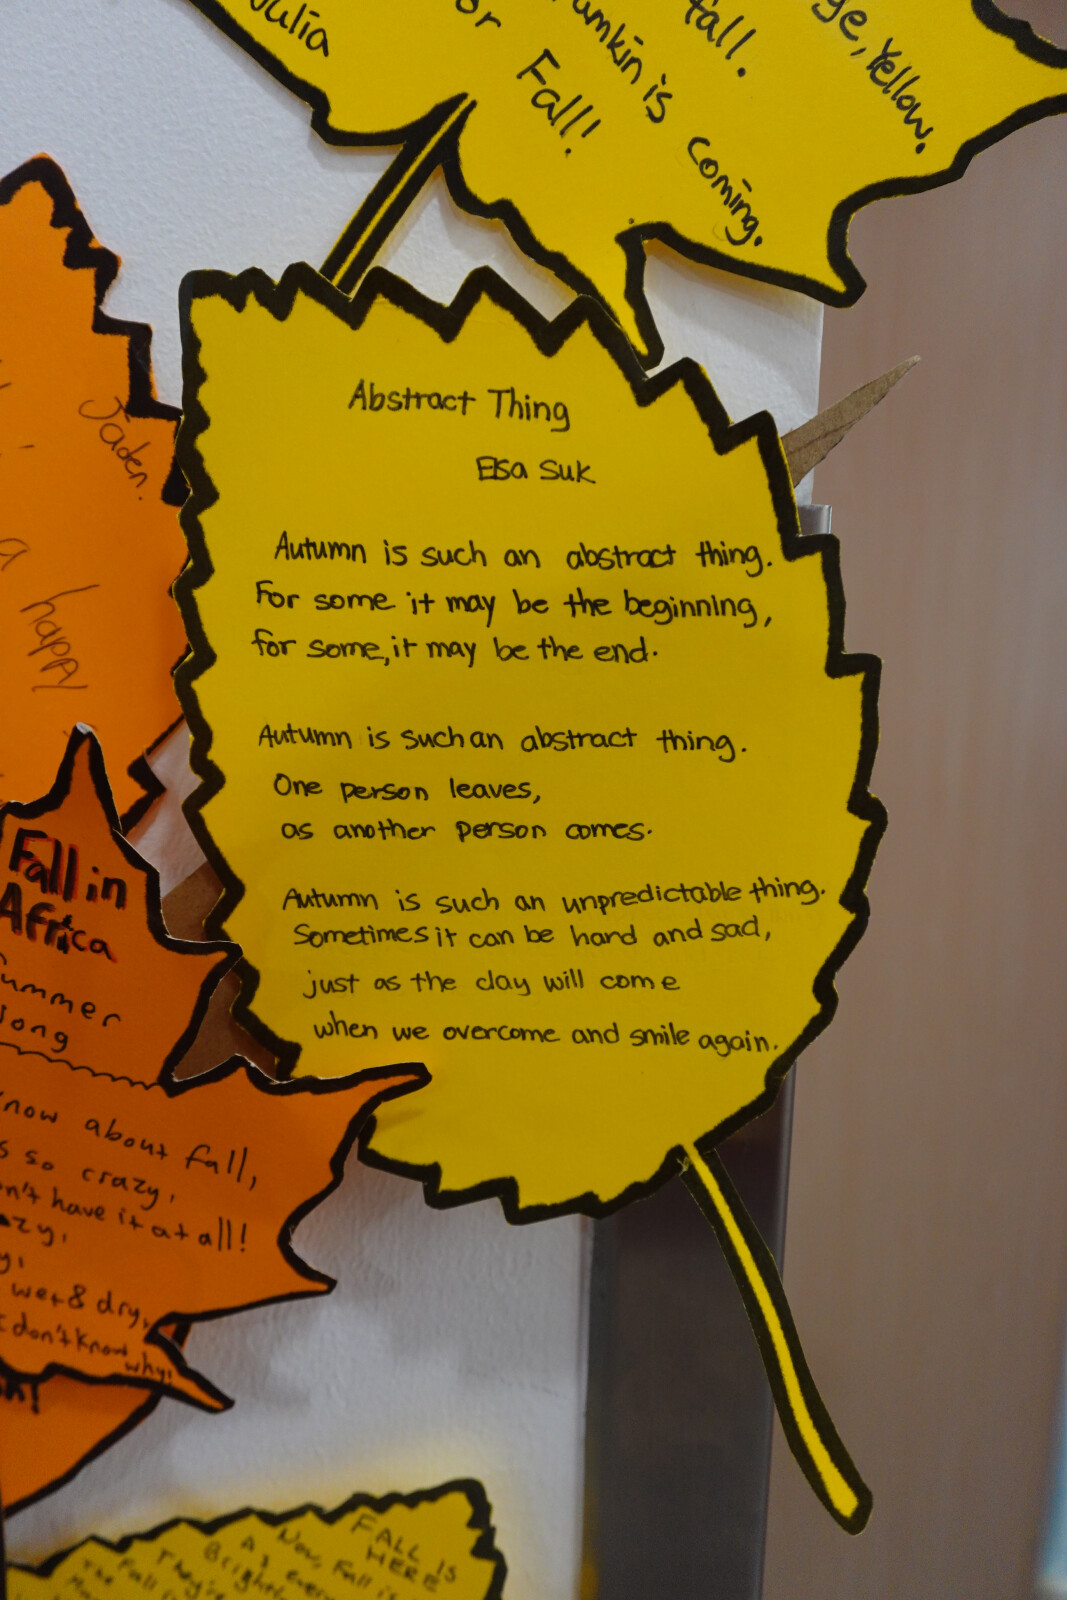 Julia
or
Fall!
is
coming.
fall.
Yellow.
Jaden.
a
happy
Abstract Thing
Elsa Suk
Autumn is such an abstract thing.
For some it may be the beginning,
for some, it may be the end.
Autumn is such an abstract thing.
One person leaves,
as another person comes.
Autumn is such an unpredictable thing.
Sometimes it can be hard and sad,
just as the day will come
when we overcome and smile again.
Fall in
Africa
Summer
about fall,
so crazy,
have it at all!
wet & dry,
don't know why!
FALL IS
HERE
Now, Fall is